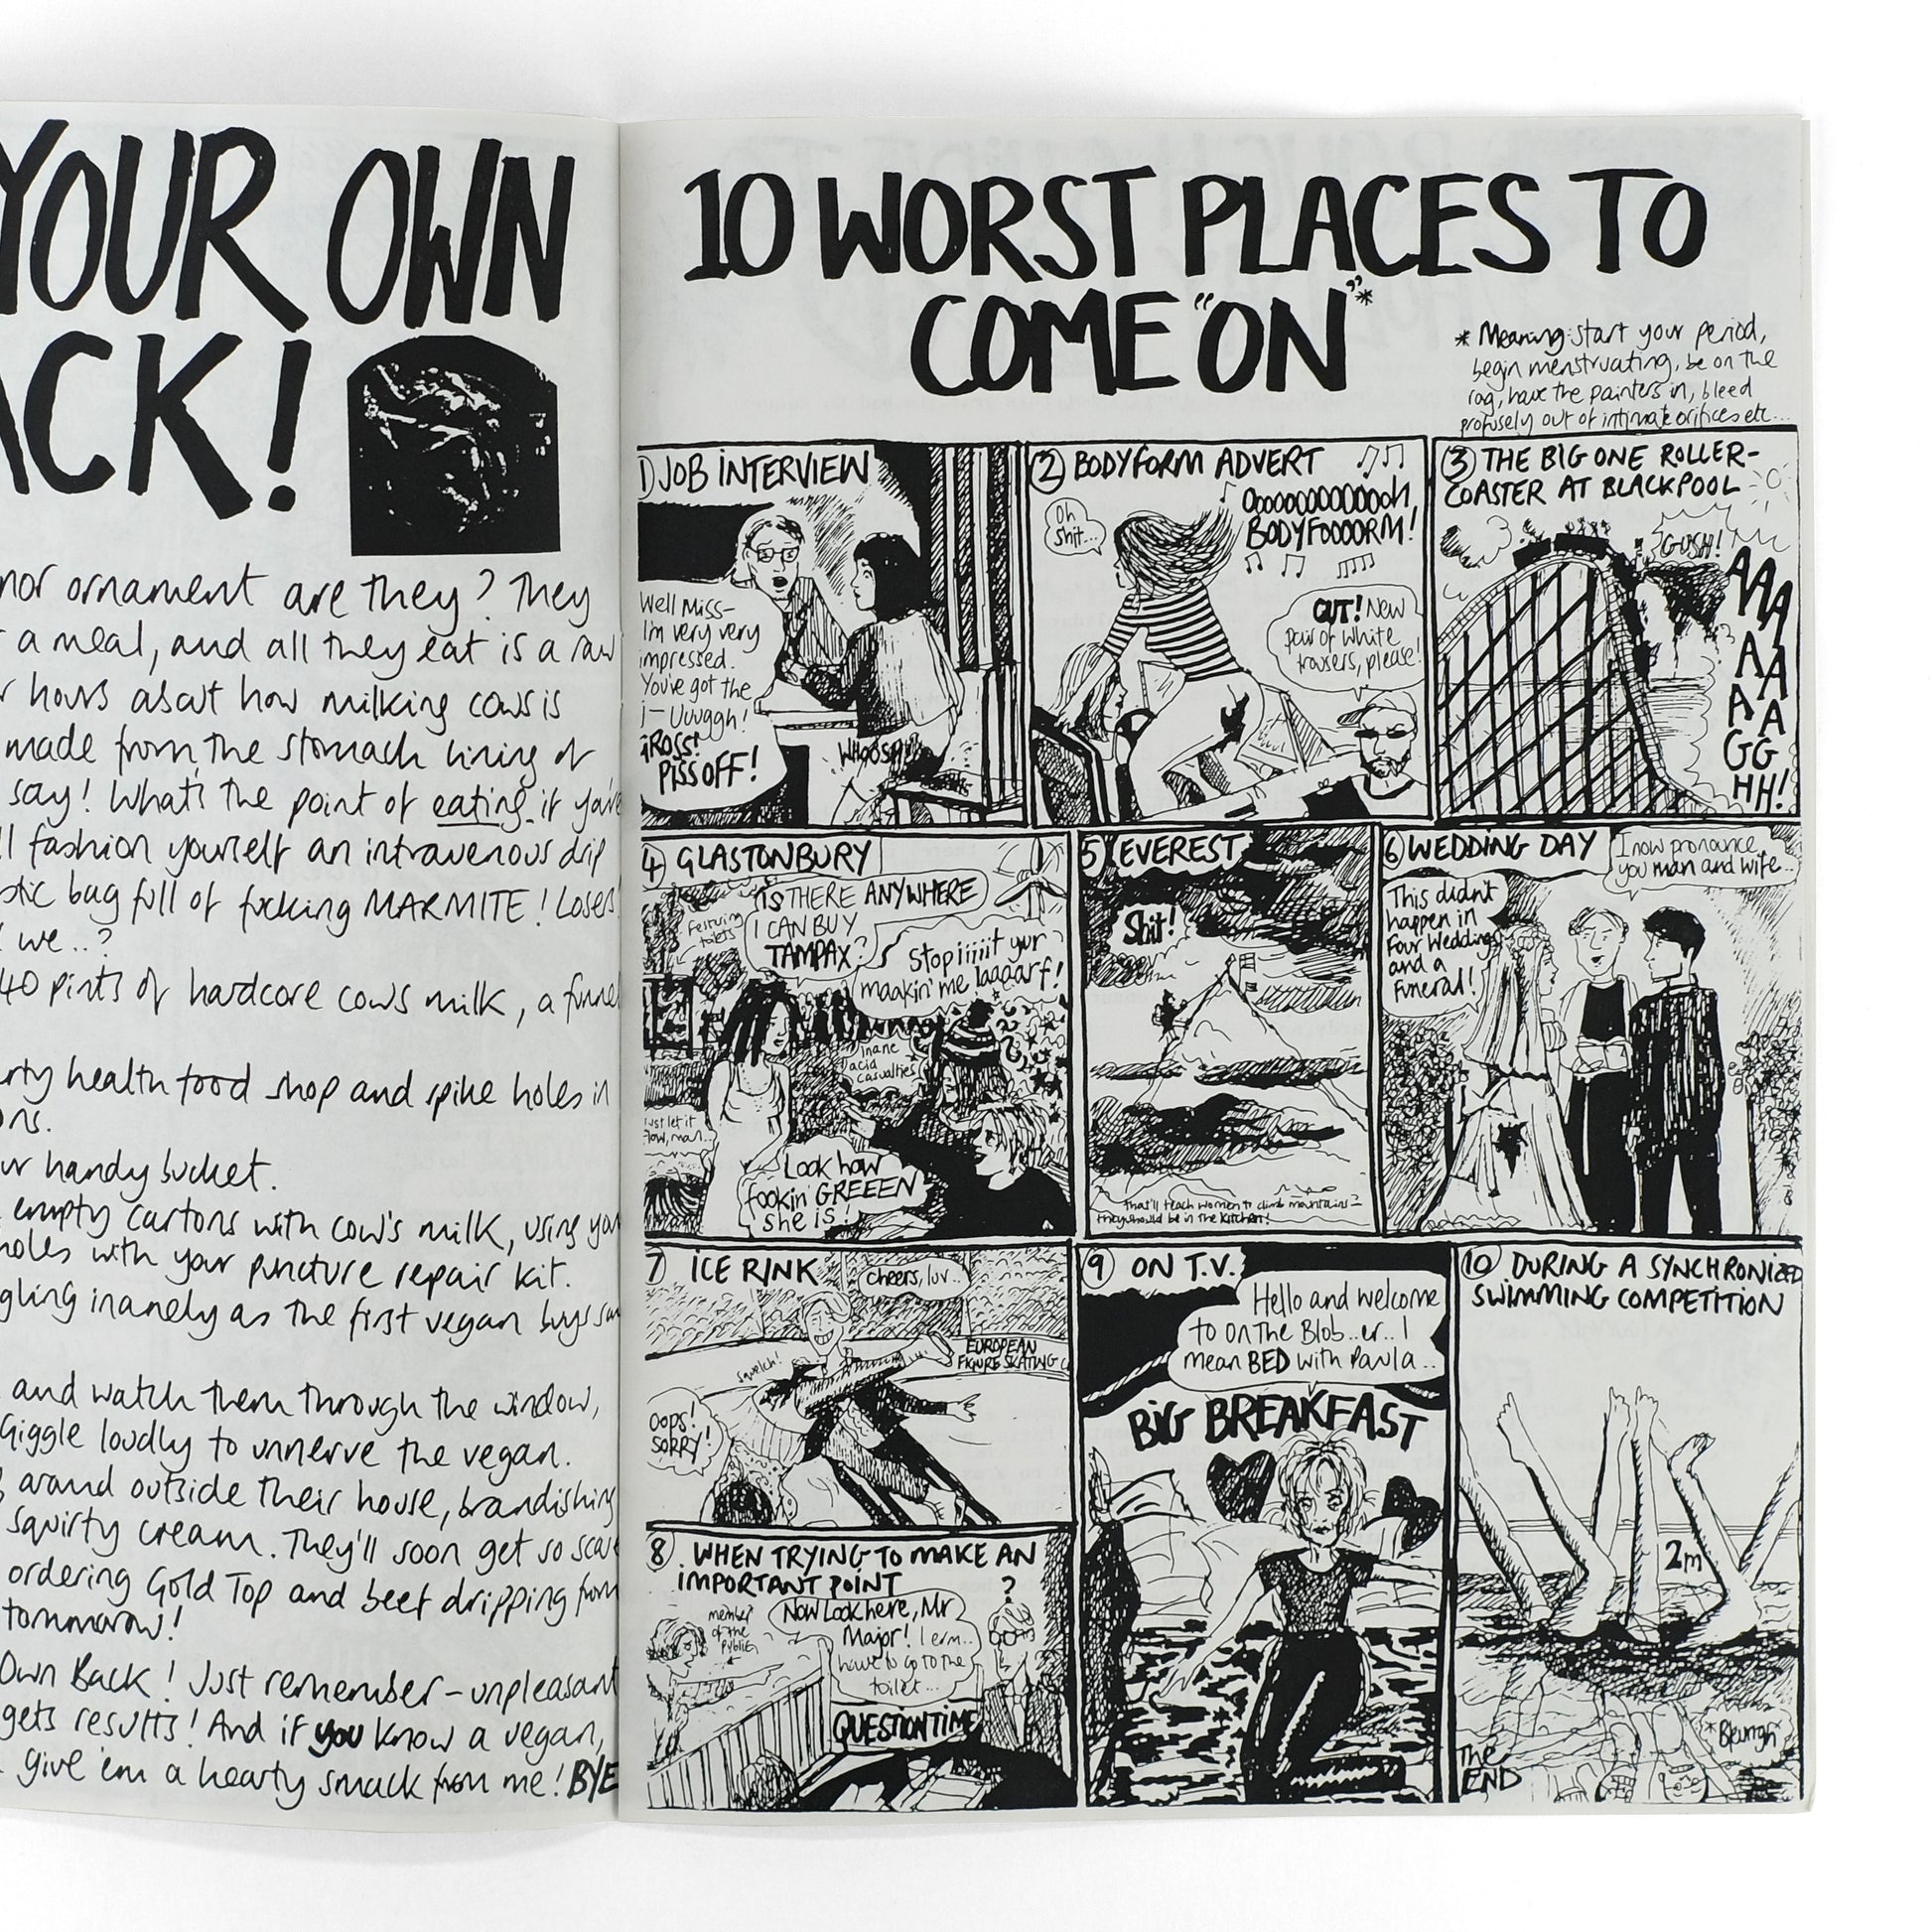 YOUR OWN
ACK!
nor ornament are they? They
a meal, and all they eat is a raw
hours about how milking cows is
made from the stomach lining of
say! What's the point of eating if you're
ll fashion yourself an intravenous drip
stic bag full of fucking MARMITE! Losers!
we..?
40 pints of hardcore cows milk, a funnel
erty health food shop and spike holes in
ons.
ur handy bucket.
empty cartons with cow's milk, using you
holes with your puncture repair kit.
ggling inanely as the first vegan buys
and watch them through the window,
Giggle loudly to unnerve the vegan.
around outside their house, brandishing
squirty cream. They'll soon get so scare
ordering Gold Top and beef dripping from
tommorow!
Own Back! Just remember-unpleasant
gets results! And if you know a vegan,
give 'em a hearty smack from me! BYE
10 WORST PLACES TO
COME "ON"*
* Meaning: start your period,
begin menstruating, be on the
rag, have the painters in, bleed
profusely out of intimate orifices etc...
1) JOB INTERVIEW
Well Miss-
I'm very very
impressed.
You've got the
j-Uuuggh!
GROSS!
PISS OFF!
WHOOSH!
2 BODYFORM ADVERT
Oh
shit...
Ooooooooooooooh
BODYFOOOORM!
CUT! New
pair of white
trousers, please!
3 THE BIG ONE ROLLER-
COASTER AT BLACKPOOL
GUSH!
AAAAAAAGGHH!
4) GLASTONBURY
festering
toilets
IS THERE ANYWHERE
I CAN BUY
TAMPAX?
Stopiiiiit yur
maakin' me laaaarf!
inane
acid
casualties
just let it
flow, man...
Look how
fookin' GREEEN
she is!
5 EVEREST
Shit!
that'll teach women to climb mountains-
they should be in the kitchen!
6 WEDDING DAY
I now pronounce
you man and wife..
This didn't
happen in
Four Weddings
and a
Funeral!
7 ICE RINK
cheers, luv..
Squelch!
EUROPEAN
FIGURE SKATING C
Oops!
SORRY!
8 WHEN TRYING TO MAKE AN
IMPORTANT POINT
member
of the
public
Now Look here, Mr
Major! I erm..
have to go to the
toilet...
?
QUESTION TIME
9 ON T.V.
Hello and welcome
to On The Blob..er.. I
mean BED with Paula..
BIG BREAKFAST
10 DURING A SYNCHRONIZED
SWIMMING COMPETITION
2m
THE
END